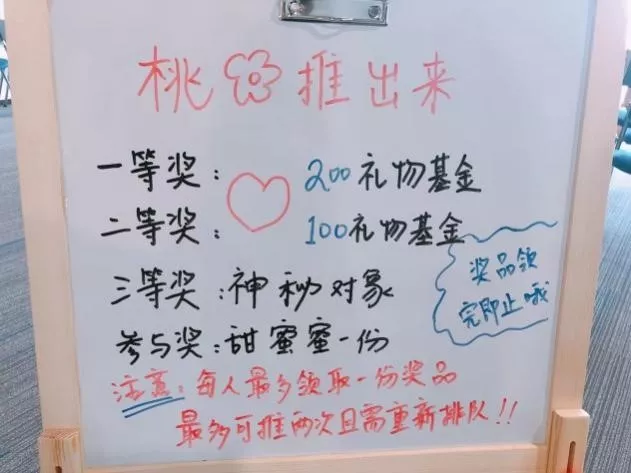 桃花推出来
一等奖: 200礼物基金
二等奖: 100礼物基金
三等奖:神秘对象
参与奖:甜蜜蜜一份
奖品领
完即止哦
注意:每人最多领取一份奖品
最多可推两次且需重新排队!!